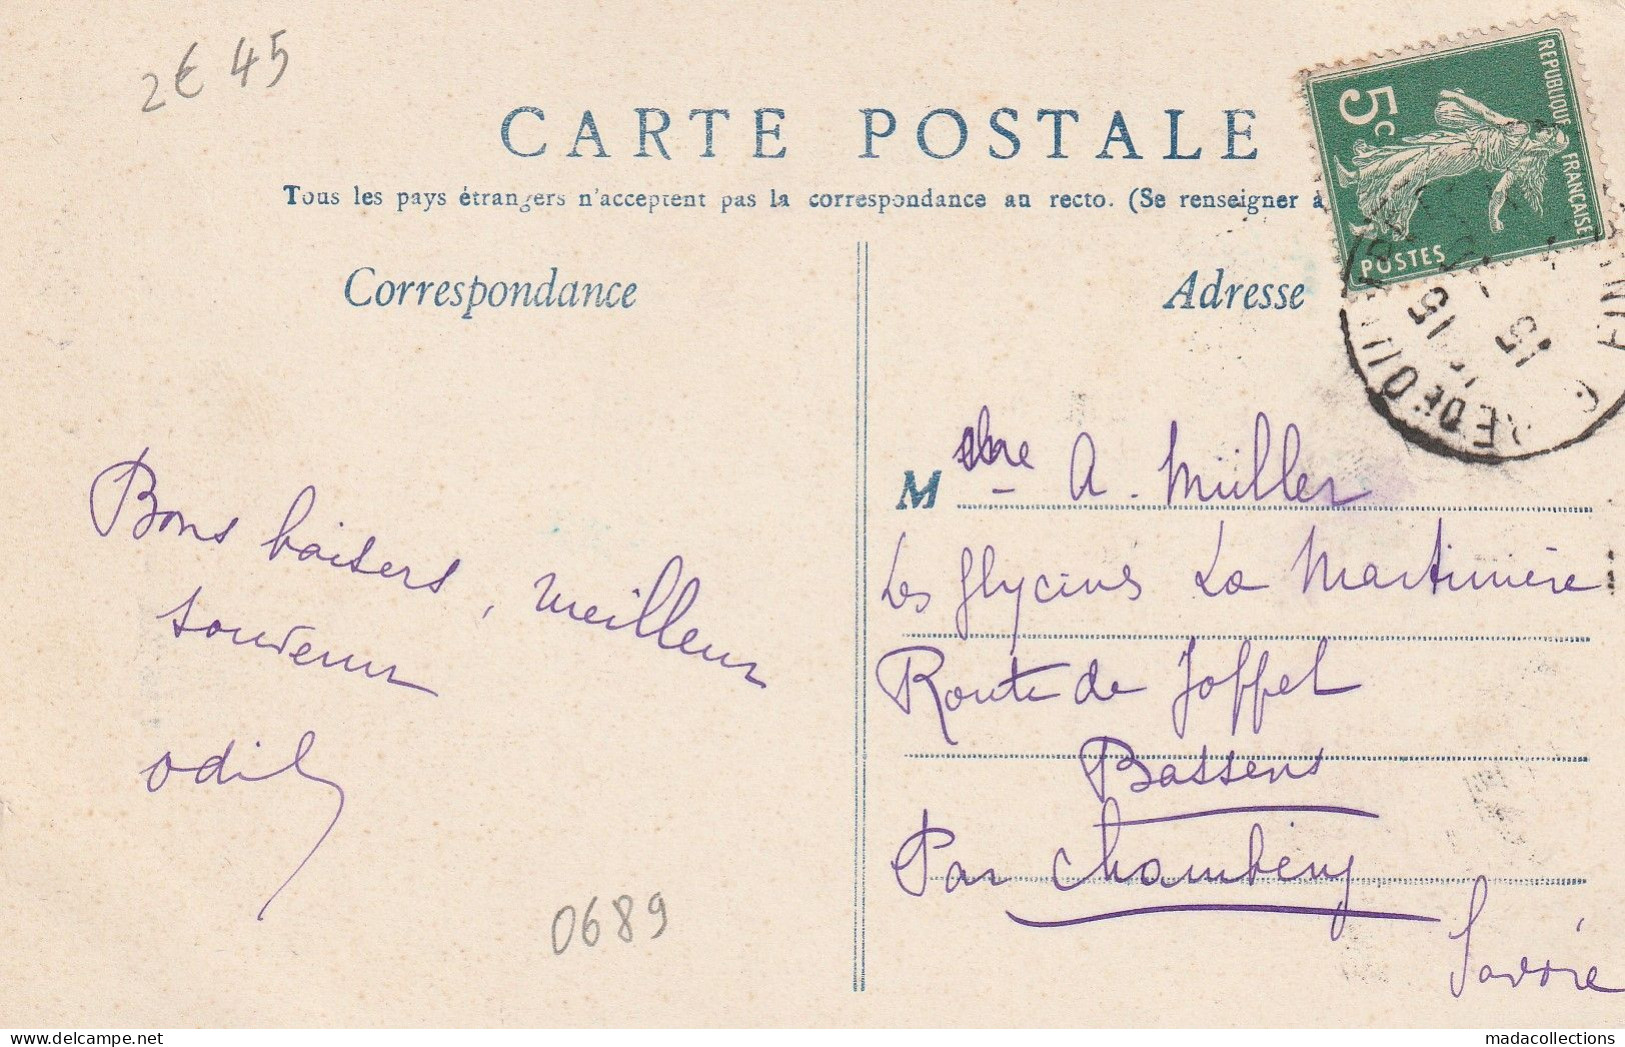 2€45
CARTE POSTALE
Tous les pays étrangers n'acceptent pas la correspondance au recto. (Se renseigner à
REPUBLIQUE FRANÇAISE
5c
POSTES
Correspondance
Adresse
15
15
Bons baisers, meilleur
souvenir
Odile
0689
M A. Müller
Les Glycines La Martinière
Route de Joppet
Bassens
Par Chambéry
Savoie
madacollections